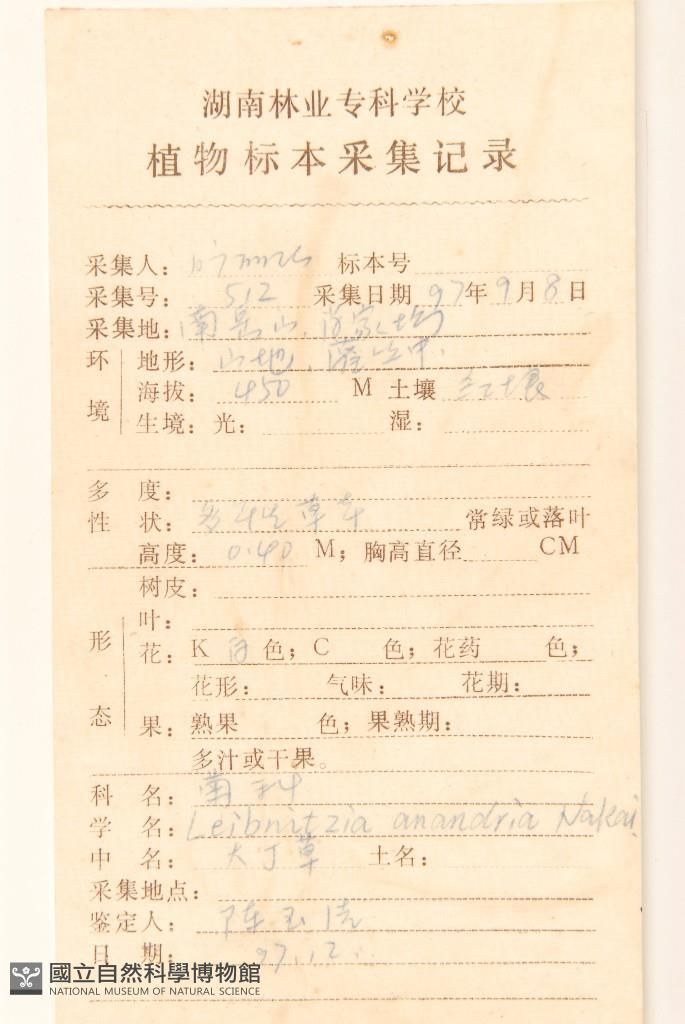 湖南林业专科学校
植物标本采集记录
采集人： 标本号
采集号： 512 采集日期 97年9月8日
采集地：南岳山、
环境 地形：山地、
海拔： 450 M 土壤 红壤
生境：光： 湿：
多 度：
性 状：多年生草本 常绿或落叶
高度： 0.40 M；胸高直径 CM
形态 树皮：
叶：
花：K 白 色；C 色；花药 色；
花形： 气味： 花期：
果：熟果 色；果熟期：
多汁或干果。
科 名：菊科
学 名：Leibnitzia anandria Nakai.
中 名：大丁草 土名：
采集地点：
鉴定人：陈
日 期：97.12.
國立自然科學博物館
NATIONAL MUSEUM OF NATURAL SCIENCE